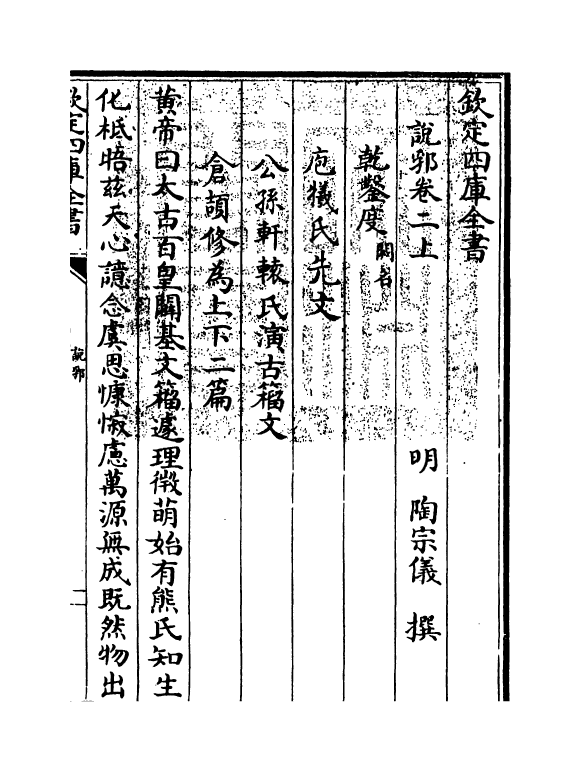 欽定四庫全書
說郛卷二上　明　陶宗儀　撰
乾鑿度闕名
庖犧氏先文
公孫軒轅氏演古籀文
倉頡修為上下二篇
黄帝曰太古百皇闢基文籀遽理微萌始有熊氏知生
化柢晤兹天心譩念虞思慷慨慮萬源無成既然物出
欽定四庫全書
說郛
二